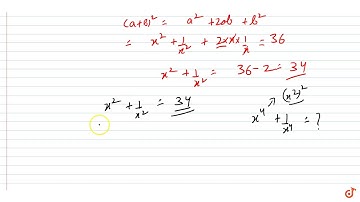 (a+b)² = a² + 2ab + b²
= x² + 1/x² + 2×x×1/x = 36
x² + 1/x² = 36-2 = 34
x² + 1/x² = 34
x⁴ → (x²)²
x⁴ + 1/x⁴ = ?